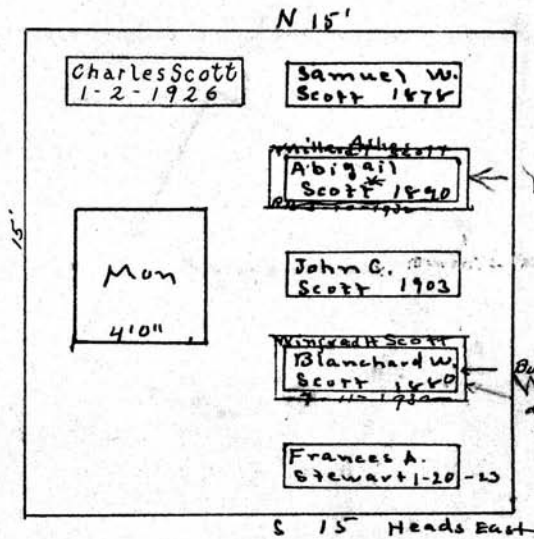 N 15'
Charles Scott
1-2-1926
Samuel W.
Scott 1878
Abigail
Scott* 1890
15'
Mon
4'0"
John C.
Scott 1903
Scott
Blanchard W.
Scott 1880
Frances A.
Stewart 1-20-23
S 15 Heads East